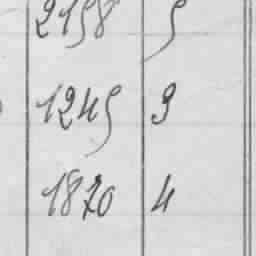 2158 5
1245 3
1870 4